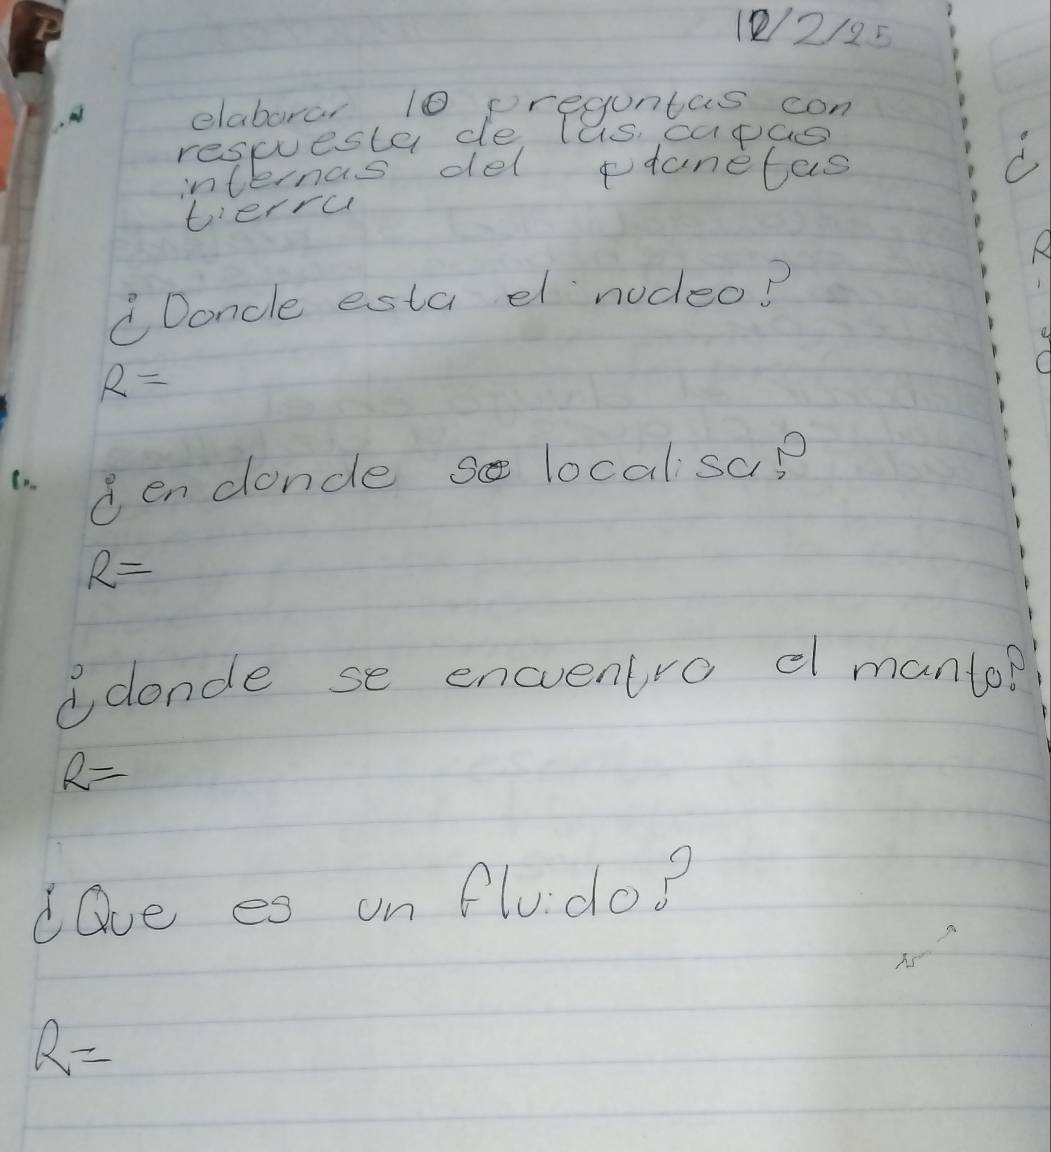 12/2/25
elaborar 10 preguntas con
respuesta de las capas
internas del planetas
tierra
¿Donde esta el nucleo?
R=
¿en donde se localisa?
R=
¿donde se encuentro el manto?
R=
¿Que es un fluido?
R=
¿
R